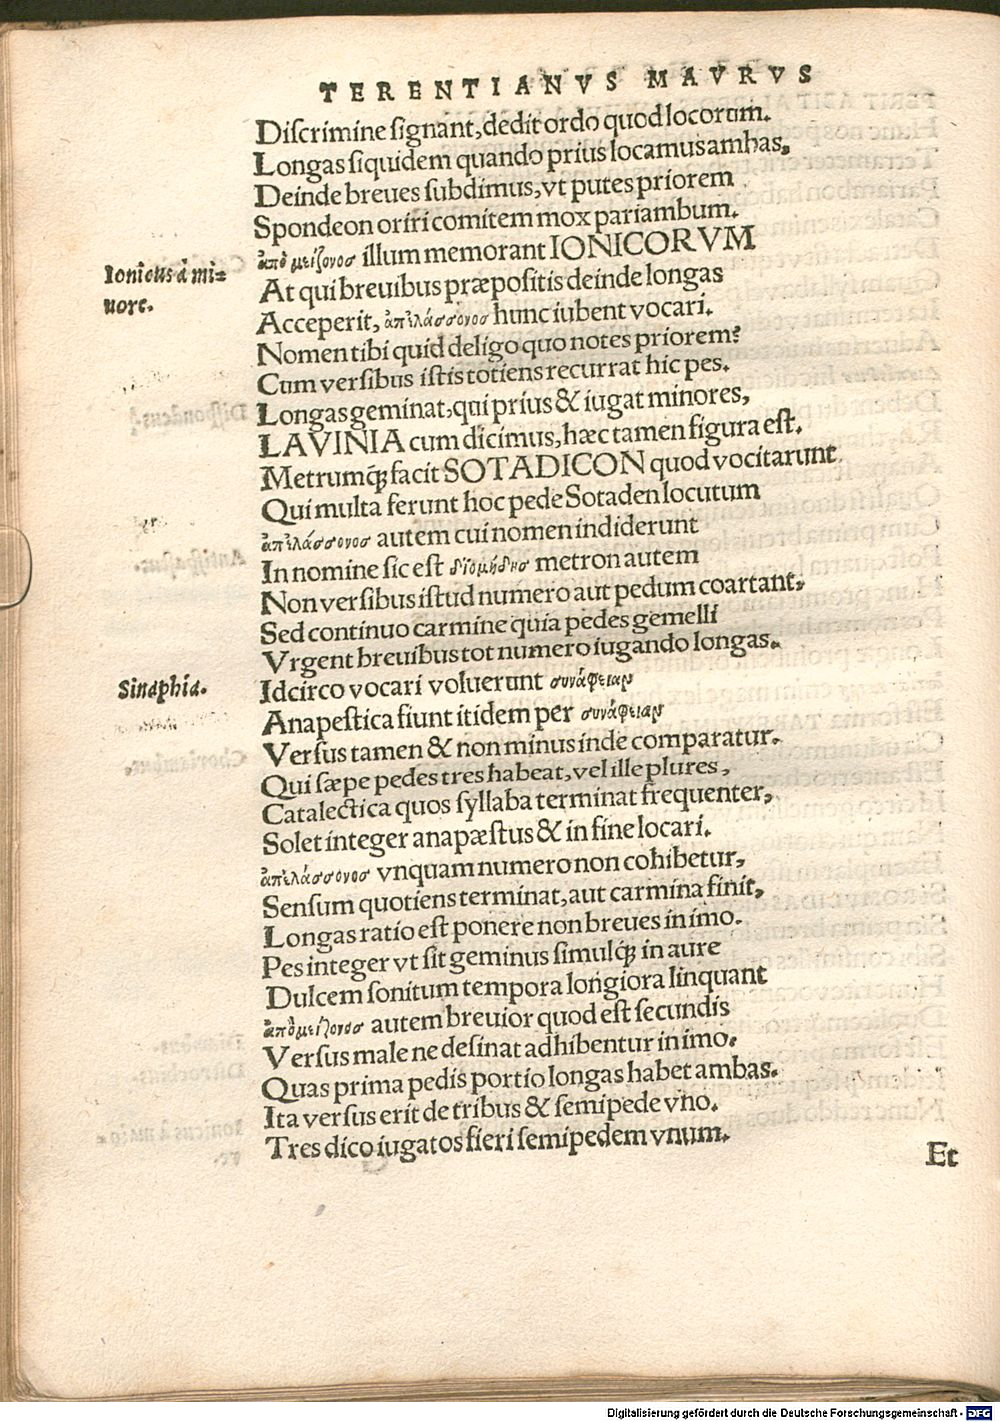 TERENTIANVS MAVRVS
Diſcrimine ſignant, dedit ordo quod locorum.
Longas ſiquidem quando prius locamus ambas.
Deinde breues ſubdimus, vt putes priorem
Spondeon oriri comitem mox pariambum.
ἀπὸ μείζονοσ illum memorant IONICORVM
Ionicus à mi=
nore.
At qui breuibus præpoſitis deinde longas
Acceperit, ἀπἐλάσσονοσ hunc iubent vocari.
Nomen tibi quid deligo quo notes priorem?
Cum verſibus iſtis totiens recurrat hic pes.
Longas geminat, qui prius & iugat minores,
LAVINIA cum dicimus, hæc tamen figura eſt.
Metrumq; facit SOTADICON quod vocitarunt
Qui multa ferunt hoc pede Sotaden locutum
ἀπἐλάσσονοσ autem cui nomen indiderunt
In nomine ſic eſt διομήδησ metron autem
Non verſibus iſtud numero aut pedum coartant,
Sed continuo carmine quia pedes gemelli
Vrgent breuibus tot numero iugando longas.
Sinaphia.
Idcirco vocari voluerunt συνάφειαν
Anapeſtica fiunt itidem per συνάφειαν
Verſus tamen & non minus inde comparatur.
Qui ſæpe pedes tres habeat, vel ille plures,
Catalectica quos ſyllaba terminat frequenter,
Solet integer anapæſtus & in fine locari.
ἀπἐλάσσονοσ vnquam numero non cohibetur,
Senſum quotiens terminat, aut carmina finit,
Longas ratio eſt ponere non breues in imo.
Pes integer vt ſit geminus ſimulq; in aure
Dulcem ſonitum tempora longiora linquant
ἀπὸ μείζονοσ autem breuior quod eſt ſecundis
Verſus male ne deſinat adhibentur in imo.
Quas prima pedis portio longas habet ambas.
Ita verſus erit de tribus & ſemipede vno.
Tres dico iugatos fieri ſemipedem vnum.
Et
Digitalisierung gefördert durch die Deutsche Forschungsgemeinschaft - DFG